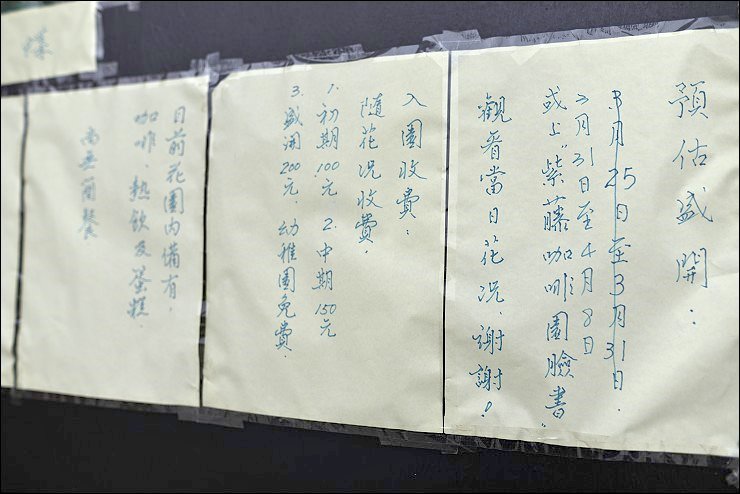 預估盛開：
3月25日至3月31日.
3月31日至4月8日
或上"紫藤咖啡園臉書.
觀看當日花況,謝謝!
入園收費：
隨花況收費,
1.初期100元 2.中期150元
3.盛開200元,幼稚園免費.
目前花園內備有,
咖啡、熱飲及蛋糕.
尚無簡餐